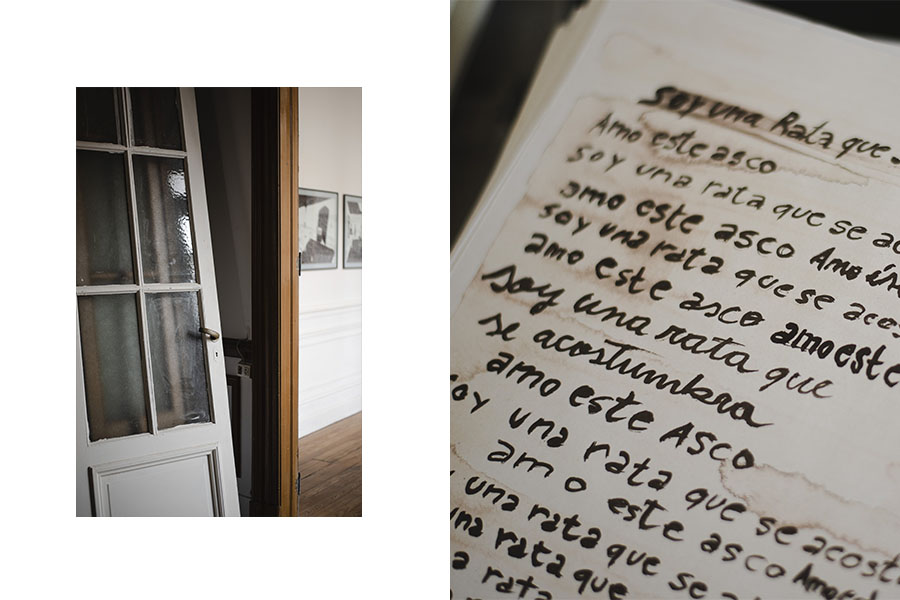 soy una Rata que
Amo este asco
soy una rata que se
amo este asco Amo
soy una rata que se
amo este asco amo este
soy una rata que
se acostumbra
amo este Asco
una rata que se
amo este asco
una rata que se
una rata que
a rata